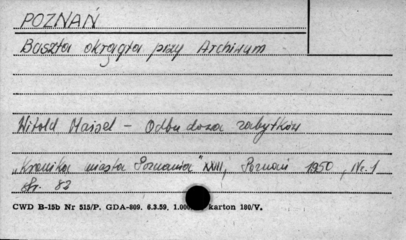 POZNAŃ
Baszta okrągła przy Archiwum
Witold Maisel - Odbudowa zabytków
"Kronika miasta Poznania" XXIII, Poznań 1950, Nr. 1
Str. 82
CWD B-15b Nr 515/P. GDA-809. 6.3.59. 1.000 karton 180/V.